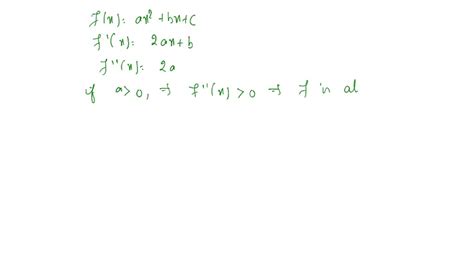 f(x): ax² + bx + c
f'(x): 2ax + b
f''(x): 2a
if a > 0, ⇒ f''(x) > 0 ⇒ f in al